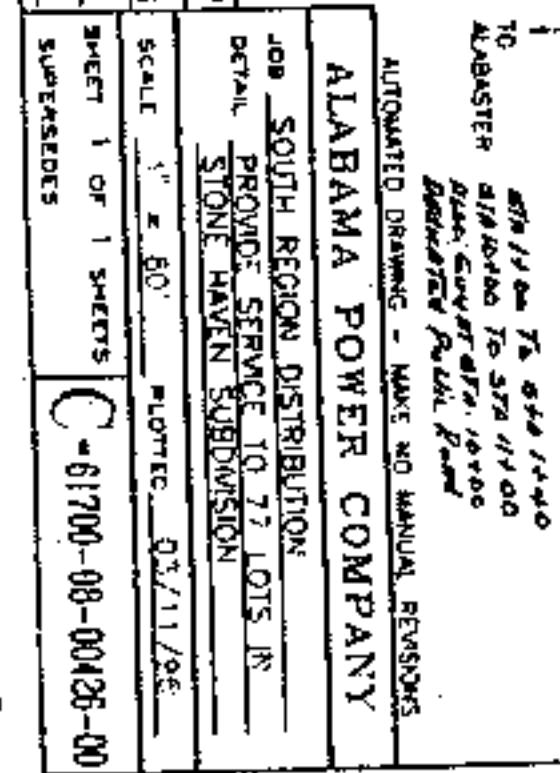 TO
ALABASTER
To
To STA 11+00
Public Road
AUTOMATED DRAWING - MAKE NO MANUAL REVISIONS
ALABAMA POWER COMPANY
JOB SOUTH REGION DISTRIBUTION
DETAIL PROVIDE SERVICE TO 77 LOTS IN
STONE HAVEN SUBDIVISION
SCALE 1" = 60' PLOTTED
SHEET 1 OF 1 SHEETS
SUPERSEDES
C-61700-08-00426-00